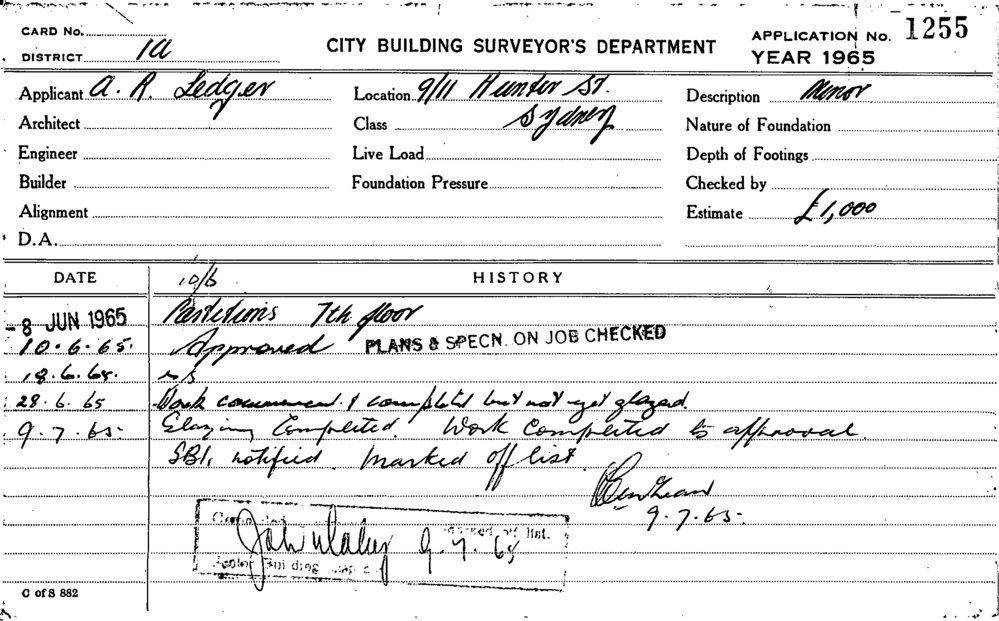 CARD No.
DISTRICT 1a
CITY BUILDING SURVEYOR'S DEPARTMENT
APPLICATION No. 1255
YEAR 1965
Applicant A. R. Ledger
Location 9/11 Hunter St.
Description Minor
Architect
Class Sydney
Nature of Foundation
Engineer
Live Load
Depth of Footings
Builder
Foundation Pressure
Checked by
Alignment
Estimate £1,000
D.A.
DATE 10/6 HISTORY
-8 JUN 1965 Partitions 7th floor
10.6.65. Approved PLANS & SPECN. ON JOB CHECKED
18.6.65. n/s
28.6.65 Work commenced & completed but not yet glazed.
9.7.65. Glazing Completed. Work Completed to approval.
SBI. notified. Marked off list
9.7.65.
Completed Marked off list.
9.7.65
Senior Building
C of S 882